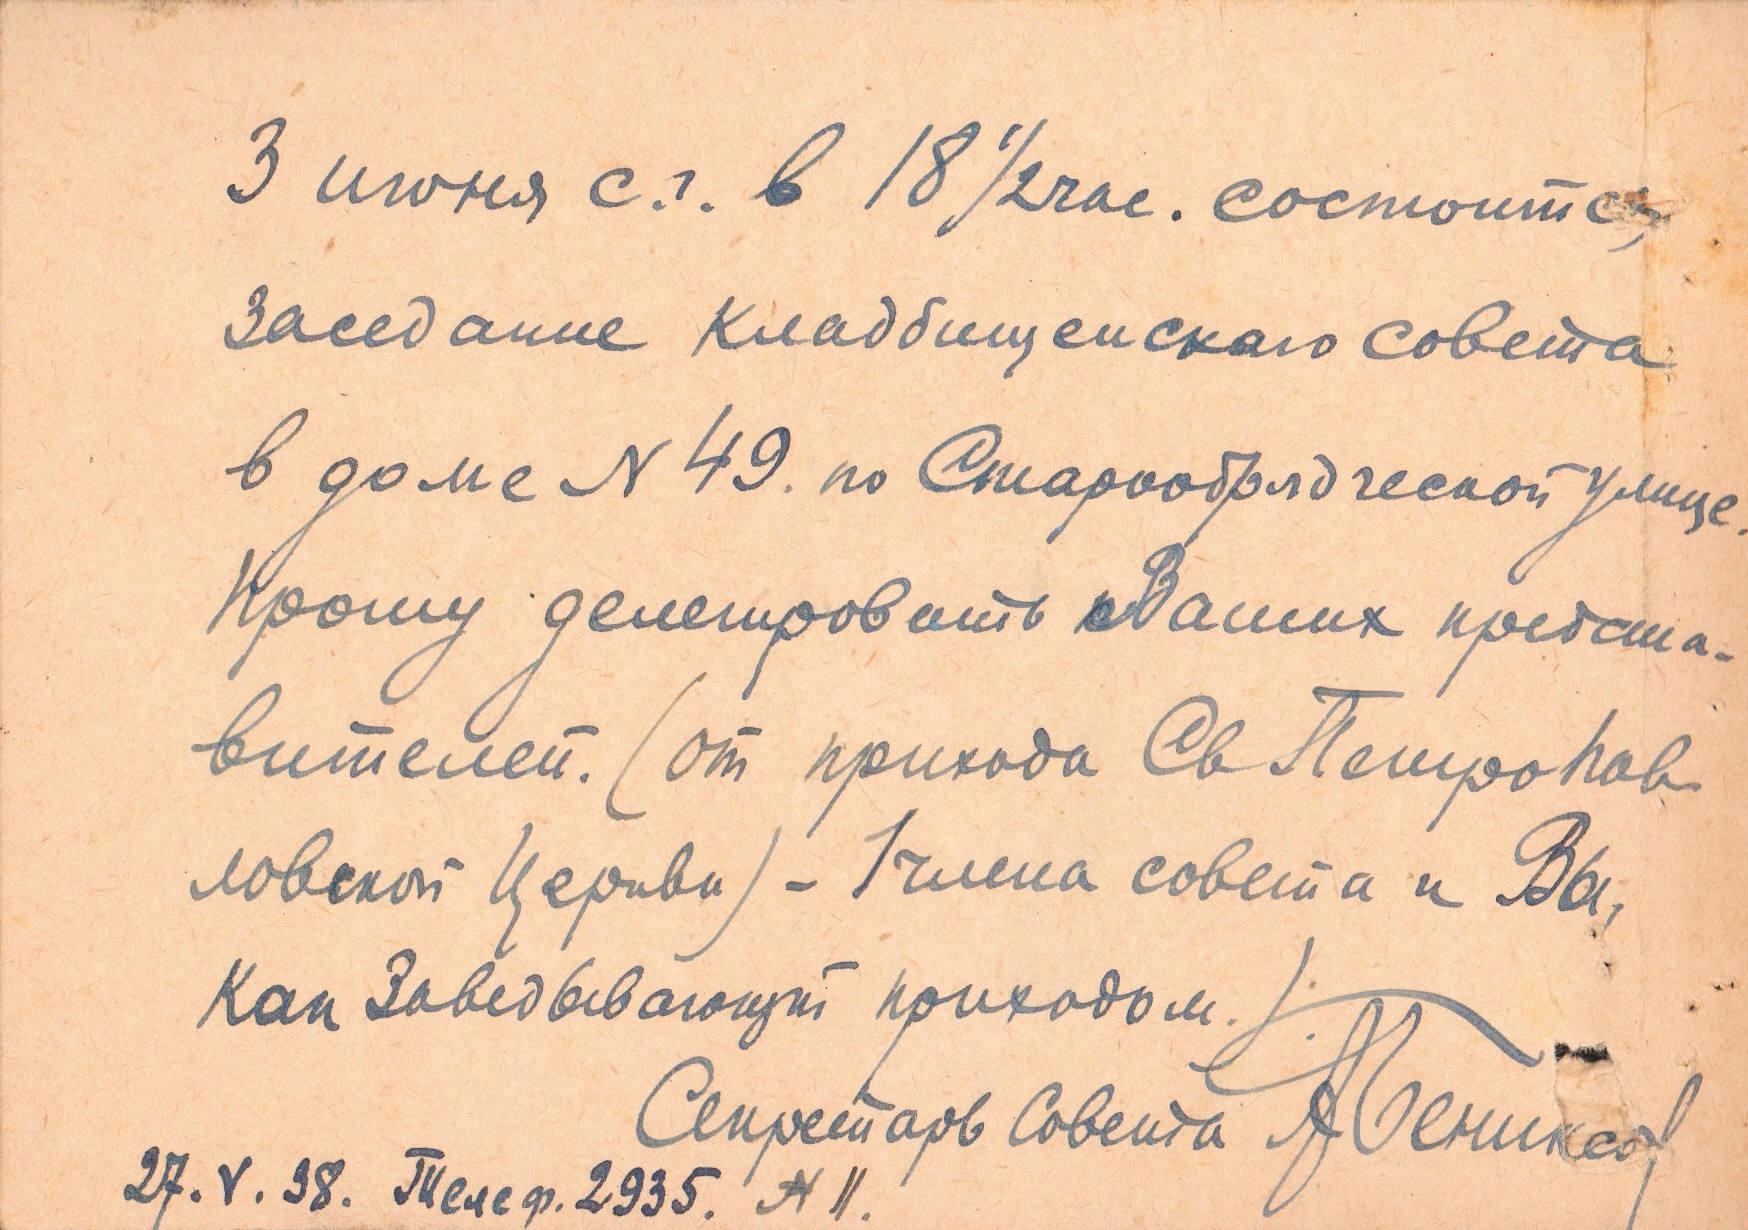 3 июня с.г. в 18 1/2 час. состоится
заседание Кладбищенскаго совета
в доме N 49. по Старообрядческой улице.
Прошу делегировать Ваших предста-
вителей. (от прихода Св Петропав
ловской Церкви) - 1 члена совета и Вы,
как Заведывающий приходом.
Секретарь Совета
27. V. 38. Телеф. 2935. N 11.